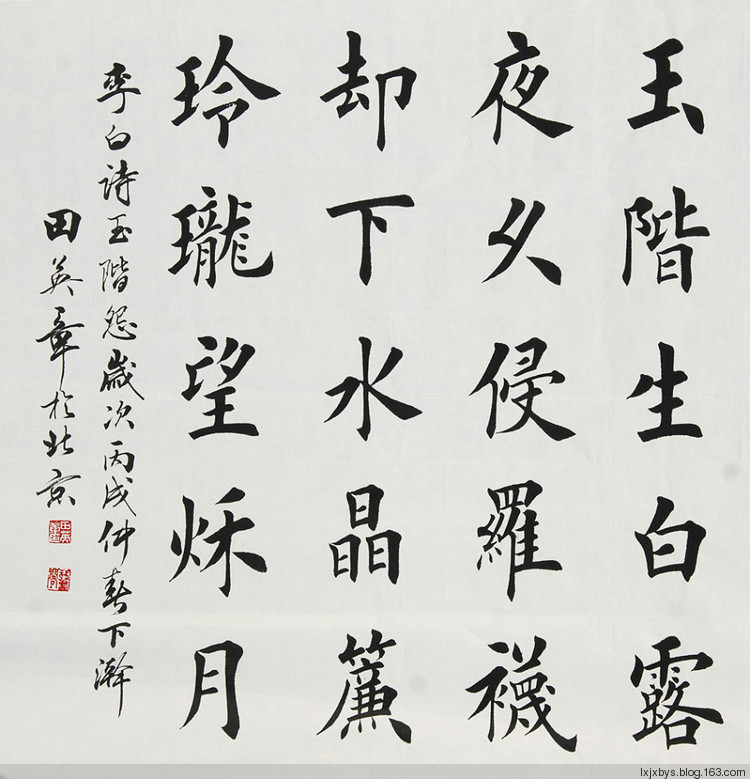 玉階生白露
夜久侵羅襪
却下水晶簾
玲瓏望秌月
李白詩玉階怨歲次丙戌仲春下澣
田英章於北京
lxjxbys.blog.163.com